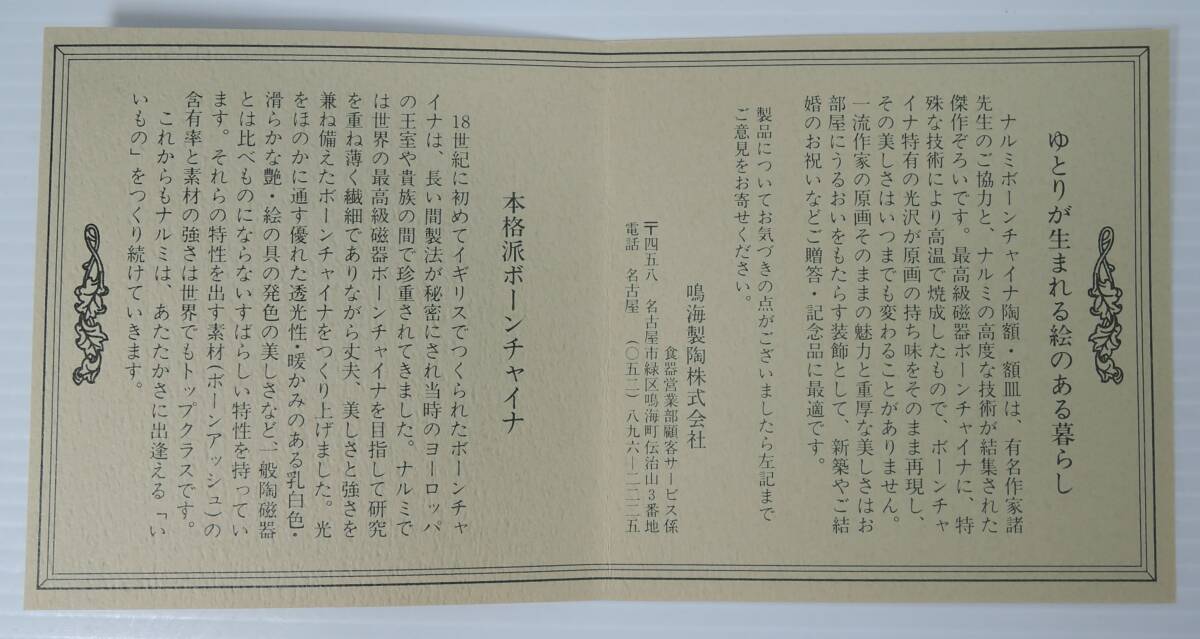 ゆとりが生まれる絵のある暮らし
ナルミボーンチャイナ陶額・額皿は、有名作家諸
先生のご協力と、ナルミの高度な技術が結集された
傑作ぞろいです。最高級磁器ボーンチャイナに、特
殊な技術により高温で焼成したもので、ボーンチャ
イナ特有の光沢が原画の持ち味をそのまま再現し、
その美しさはいつまでも変わることがありません。
一流作家の原画そのままの魅力と重厚な美しさはお
部屋にうるおいをもたらす装飾として、新築やご結
婚のお祝いなどご贈答・記念品に最適です。
製品についてお気づきの点がございましたら左記まで
ご意見をお寄せください。
鳴海製陶株式会社
食器営業部顧客サービス係
〒四五八 名古屋市緑区鳴海町伝治山3番地
電話 名古屋 (〇五二) 八九六―二二二五
本格派ボーンチャイナ
18世紀に初めてイギリスでつくられたボーンチャ
イナは、長い間製法が秘密にされ当時のヨーロッパ
の王室や貴族の間で珍重されてきました。ナルミで
は世界の最高級磁器ボーンチャイナを目指して研究
を重ね薄く繊細でありながら丈夫、美しさと強さを
兼ね備えたボーンチャイナをつくり上げました。光
をほのかに通す優れた透光性・暖かみのある乳白色・
滑らかな艶・絵の具の発色の美しさなど、一般陶磁器
とは比べものにならないすばらしい特性を持ってい
ます。それらの特性を出す素材(ボーンアッシュ)の
含有率と素材の強さは世界でもトップクラスです。
これからもナルミは、あたたかさに出逢える「い
いもの」をつくり続けていきます。